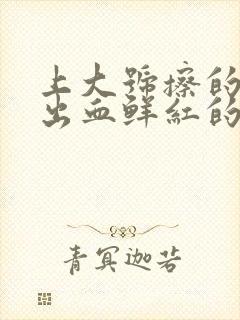 上大号擦的
出血鲜红的
青冥迦若